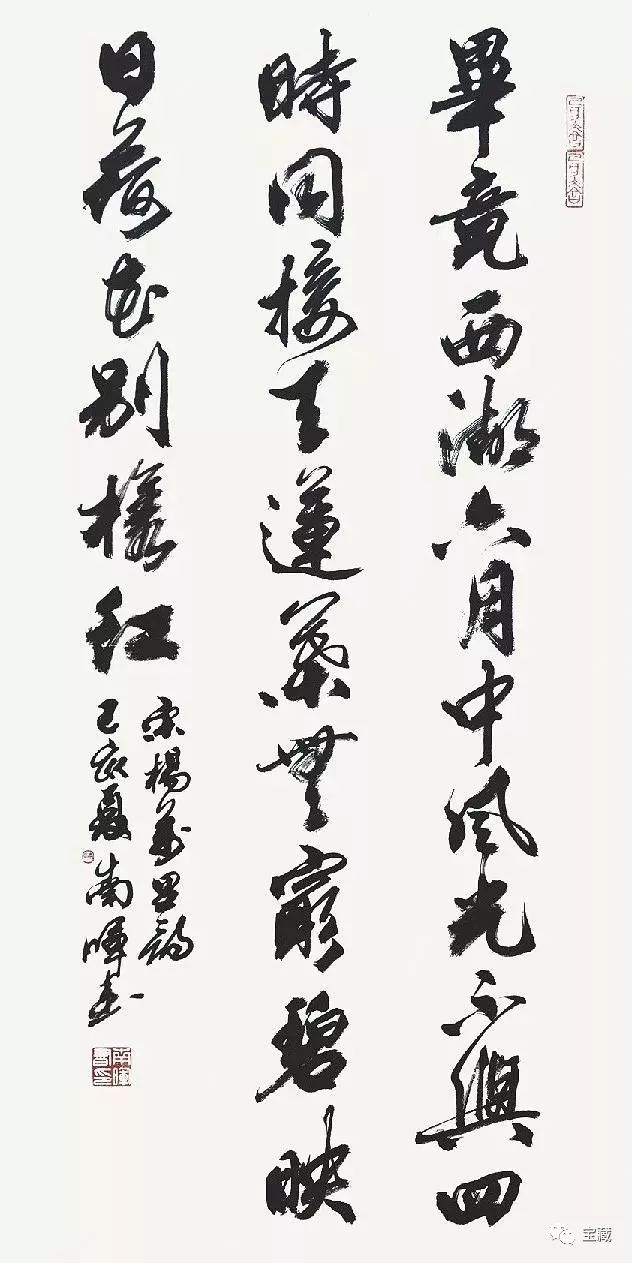 畢竟西湖六月中風光不與四
時同接天蓮葉無窮碧映
日荷花別樣紅
宋楊萬里詩
己亥夏南暉書
宝藏